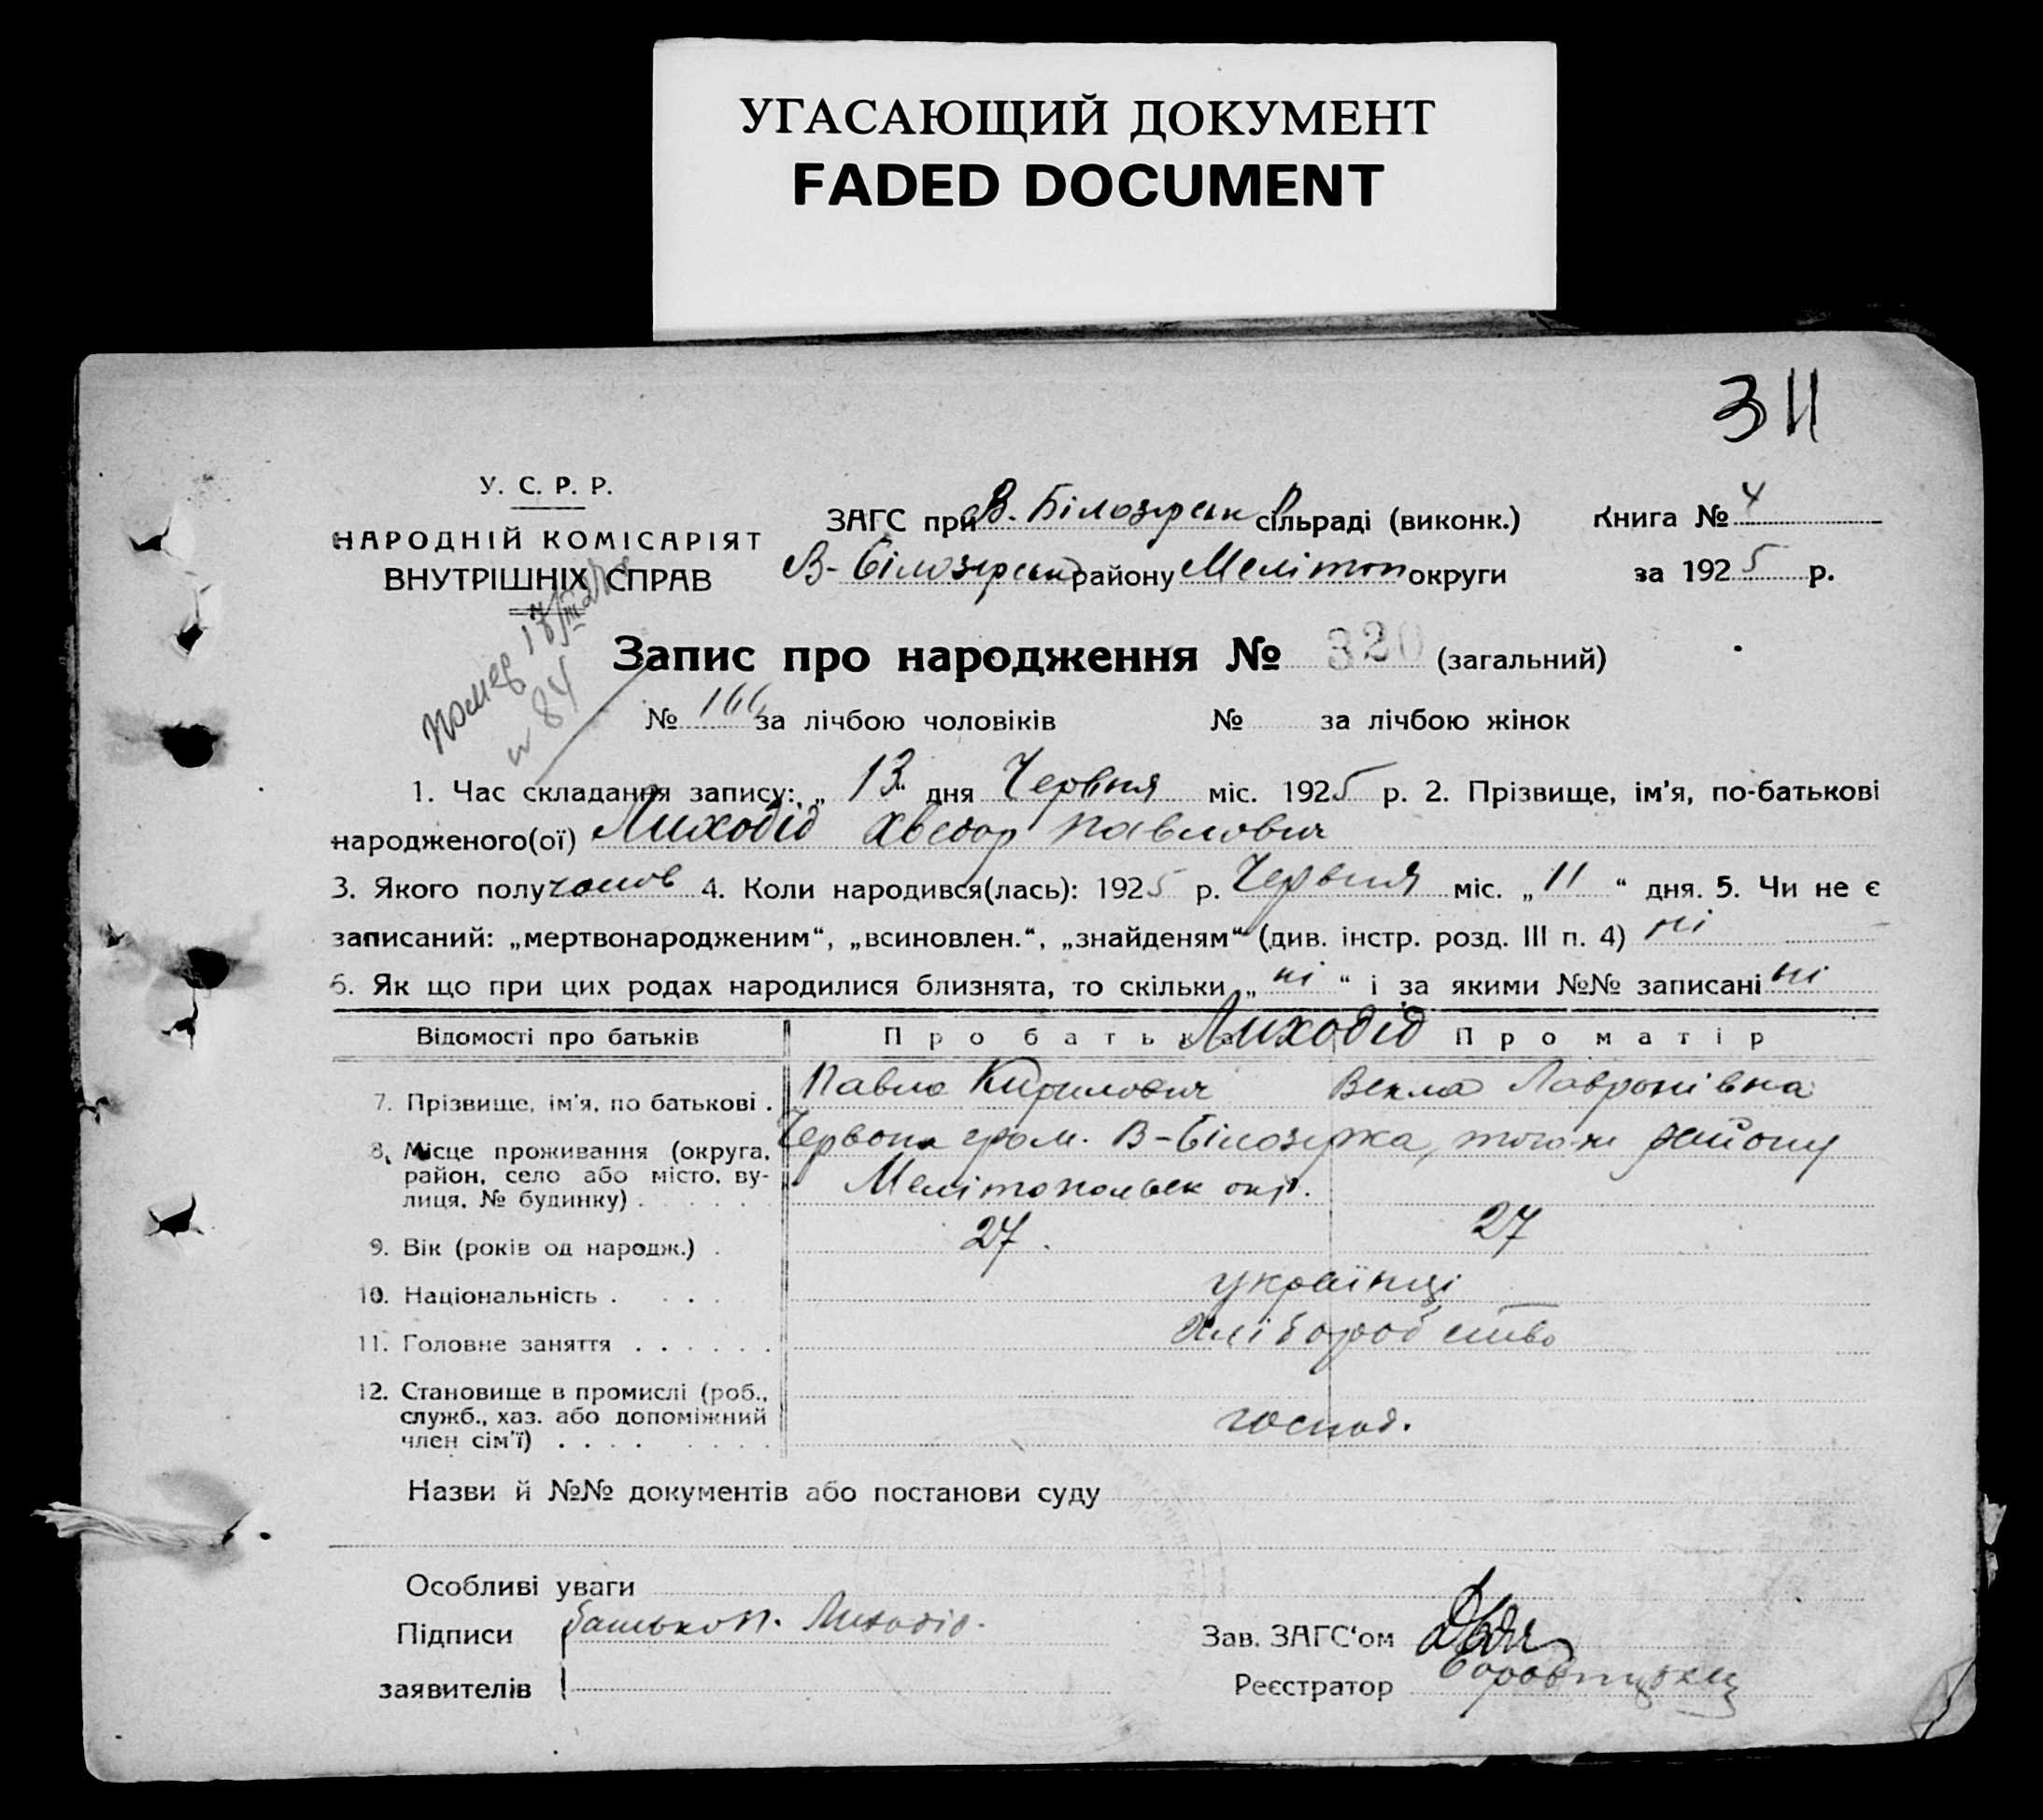 УГАСАЮЩИЙ ДОКУМЕНТ
FADED DOCUMENT
311
У. С. Р. Р.
НАРОДНІЙ КОМІСАРІЯТ
ВНУТРІШНІХ СПРАВ
ЗАГС при В. Білозерськ сільраді (виконк.)
Книга № 4
В-Білозерськ району Мелітоп округи
за 1925 р.
помер 17/III
№ 84
Запис про народження № 320 (загальний)
№ 166 за лічбою чоловіків № за лічбою жінок
1. Час складання запису: „ 13 дня Червня міс. 1925 р. 2. Прізвище, ім'я, по-батькові
народженого(ої) Лиходід Хведор Павлович
3. Якого полу чолов 4. Коли народився(лась): 1925 р. Червня міс. „ 11 “ дня. 5. Чи не є
записаний: „мертвонародженим“, „всиновлен.“, „знайденям“ (див. інстр. розд. III п. 4) ні
6. Як що при цих родах народилися близнята, то скільки „ ні “ і за якими №№ записані ні
Відомості про батьків Про батька Лиходід Про матір
7. Прізвище, ім'я, по батькові . Павло Кирилович Векла Лавронівна
8. Місце проживання (округа, Червона гром. В-Білозерка, того-ж району
район, село або місто, ву- Мелітопольськ окр.
лиця, № будинку) .
9. Вік (років од народж.) . 27. 27
10. Національність . українці
11. Головне заняття . хліборобство
12. Становище в промислі (роб.,
служб., хаз. або допоміжний господ.
член сім'ї) .
Назви й №№ документів або постанови суду
Особливі уваги
Підписи батько П. Лиходід.
Зав. ЗАГС'ом
заявителів
Реєстратор